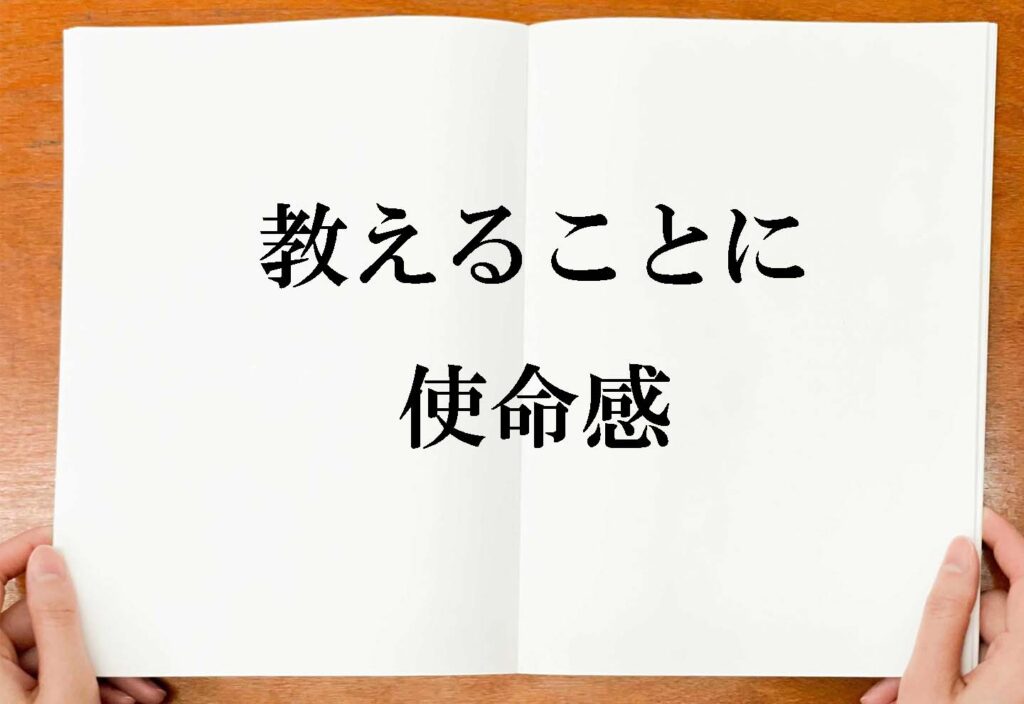 教えることに
使命感